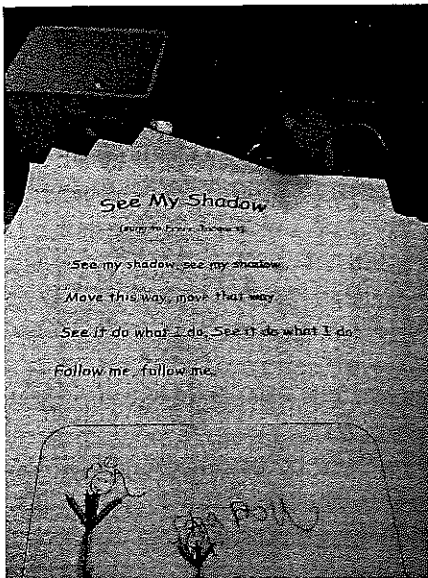 See My Shadow
(sung to Frere Jacques)
See my shadow, see my shadow
Move this way, move that way.
See it do what I do, See it do what I do
Follow me, follow me.